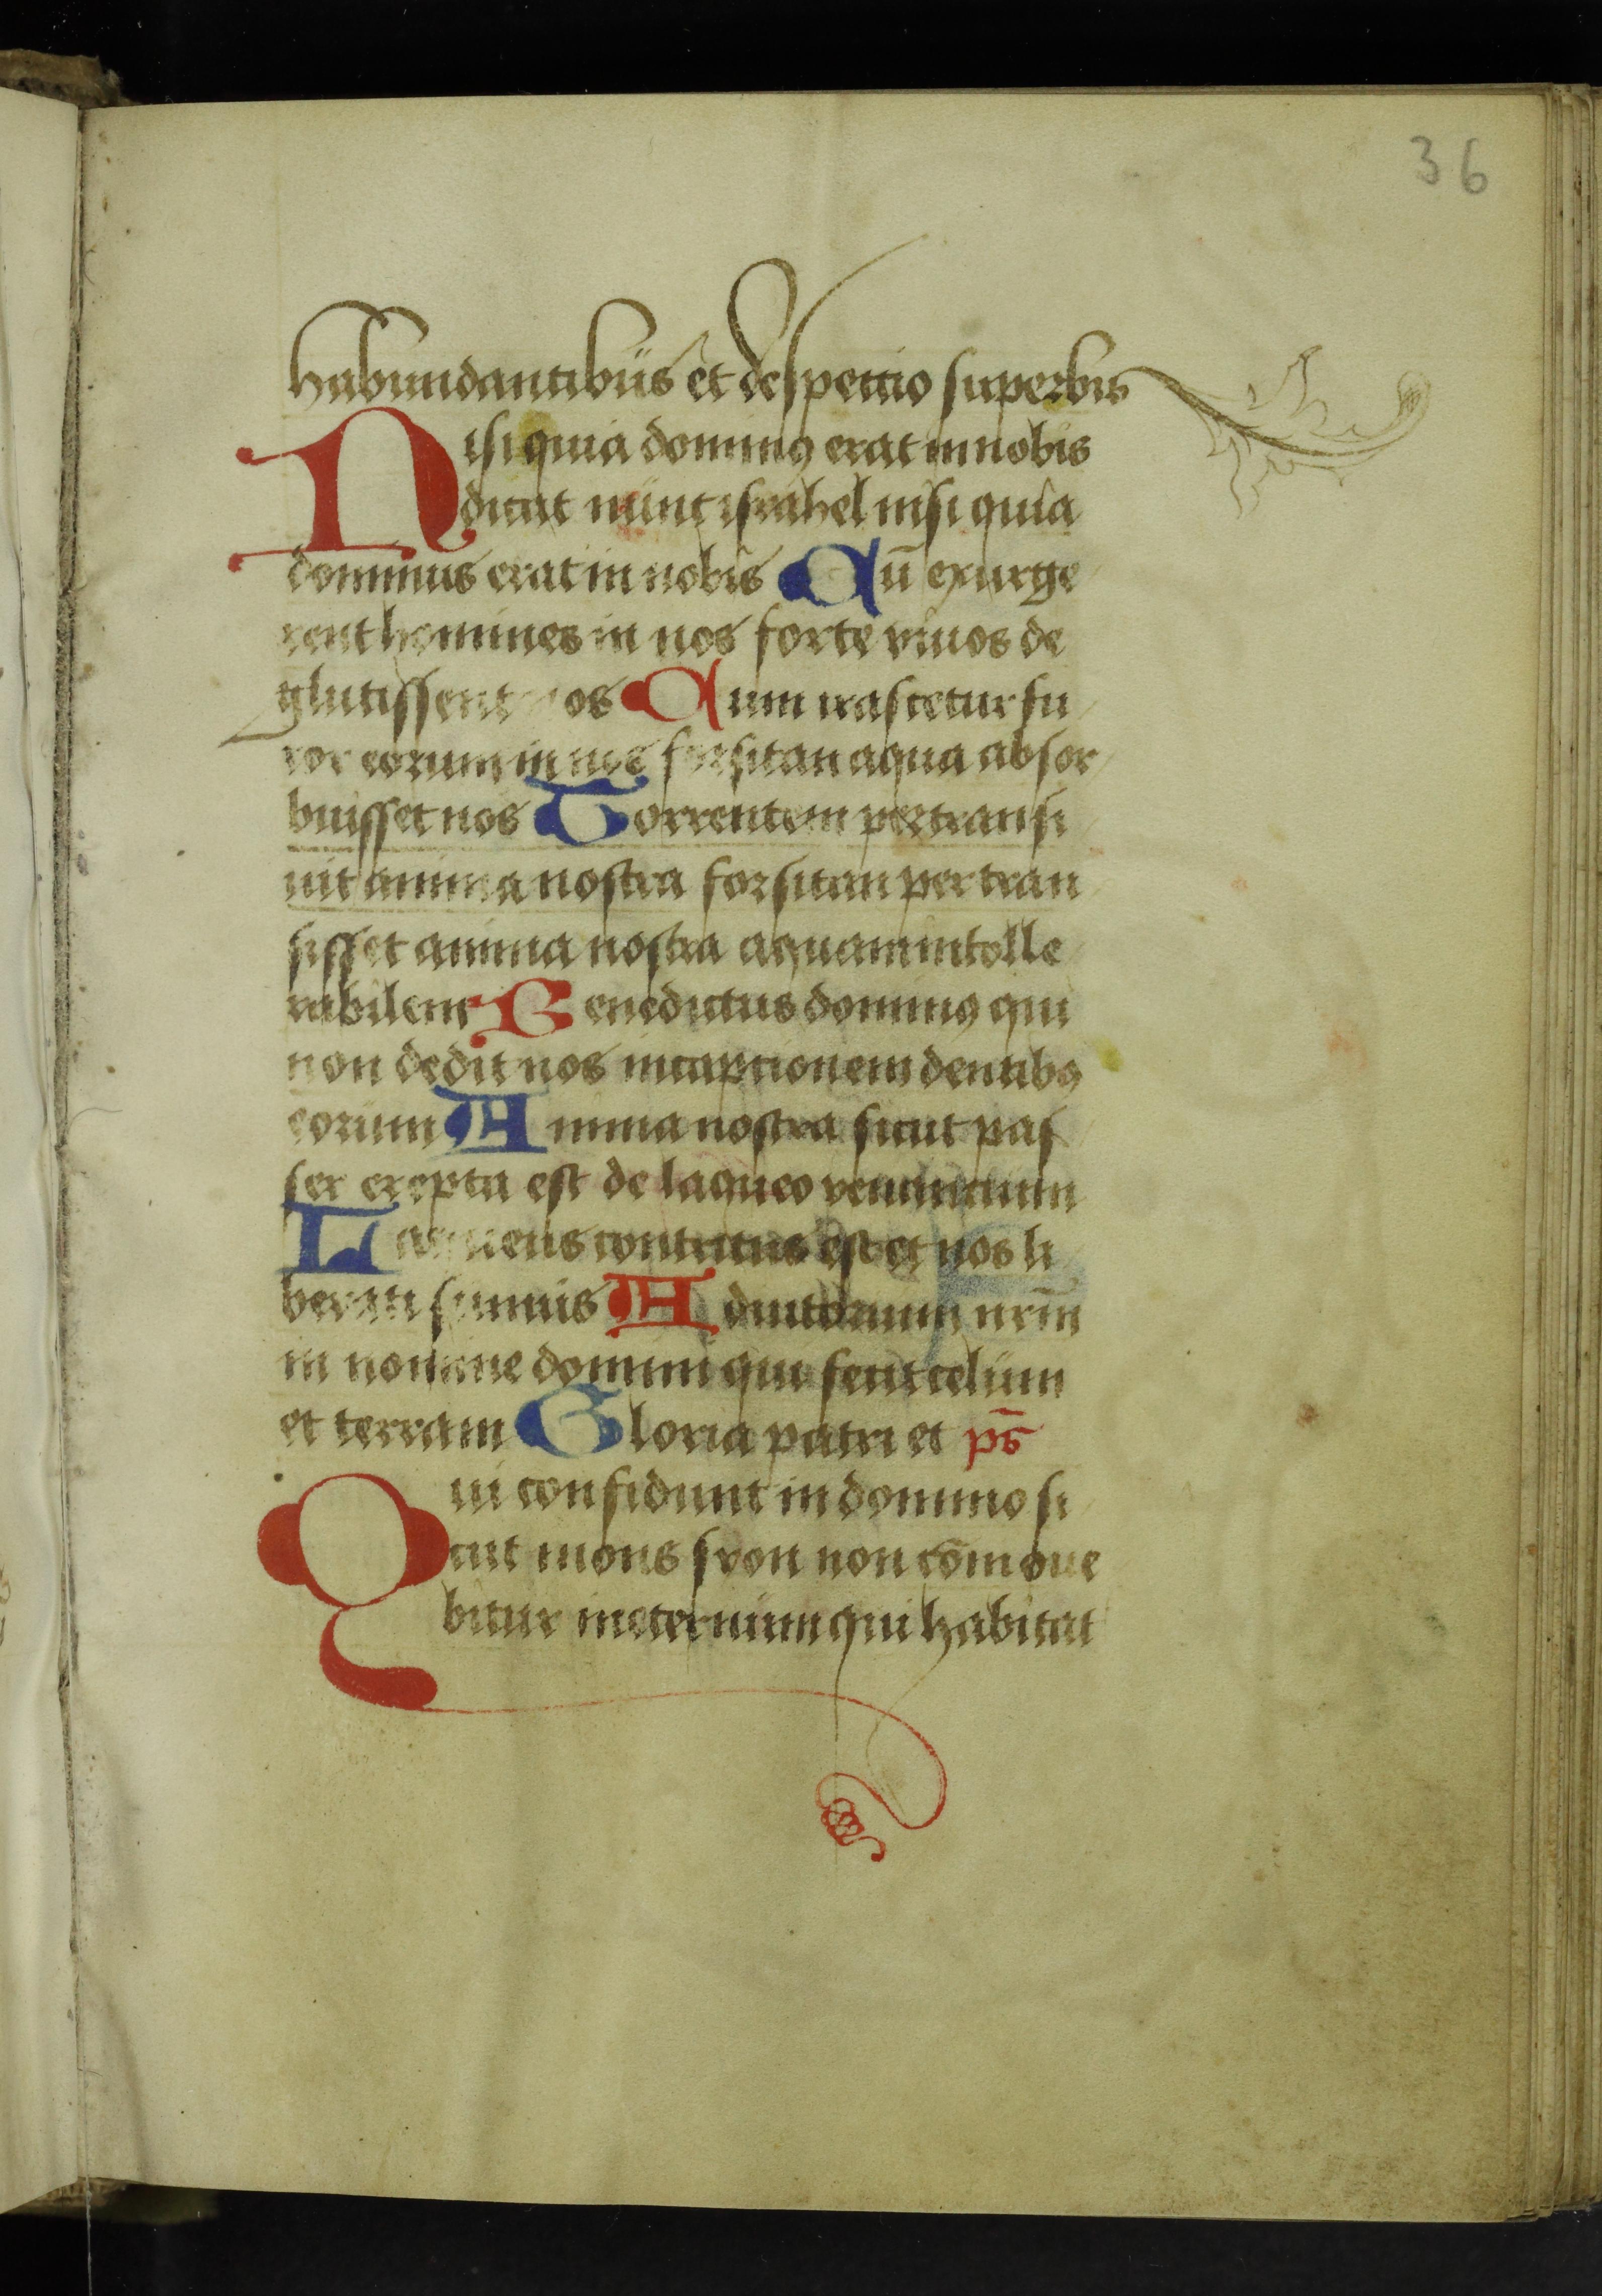 36
habundantibus et despectio superbis
Nisi quia dominꝰ erat in nobis
dicat nunc israhel nisi quia
dominus erat in nobis Cū exurge
rent homines in nos forte vivos de
glutissent nos Cum irascetur fu
ror eorum in nos forsitan aqua absor
buisset nos Torrentem pertransi
uit anima nostra forsitan pertran
sisset anima nostra aquam intolle
rabilem Benedictus dominꝰ qui
non dedit nos in captionem dentibꝰ
eorum Anima nostra sicut pas
ser erepta est de laqueo venantium
Laqueus contritus est et nos li
berati sumus Adiutorium nrm̄
in nomine domini qui fecit celum
et terram Gloria patri et pˉs
Qui confidunt in domino si
cut mons syon non cōmoue
bitur in eternum qui habitat